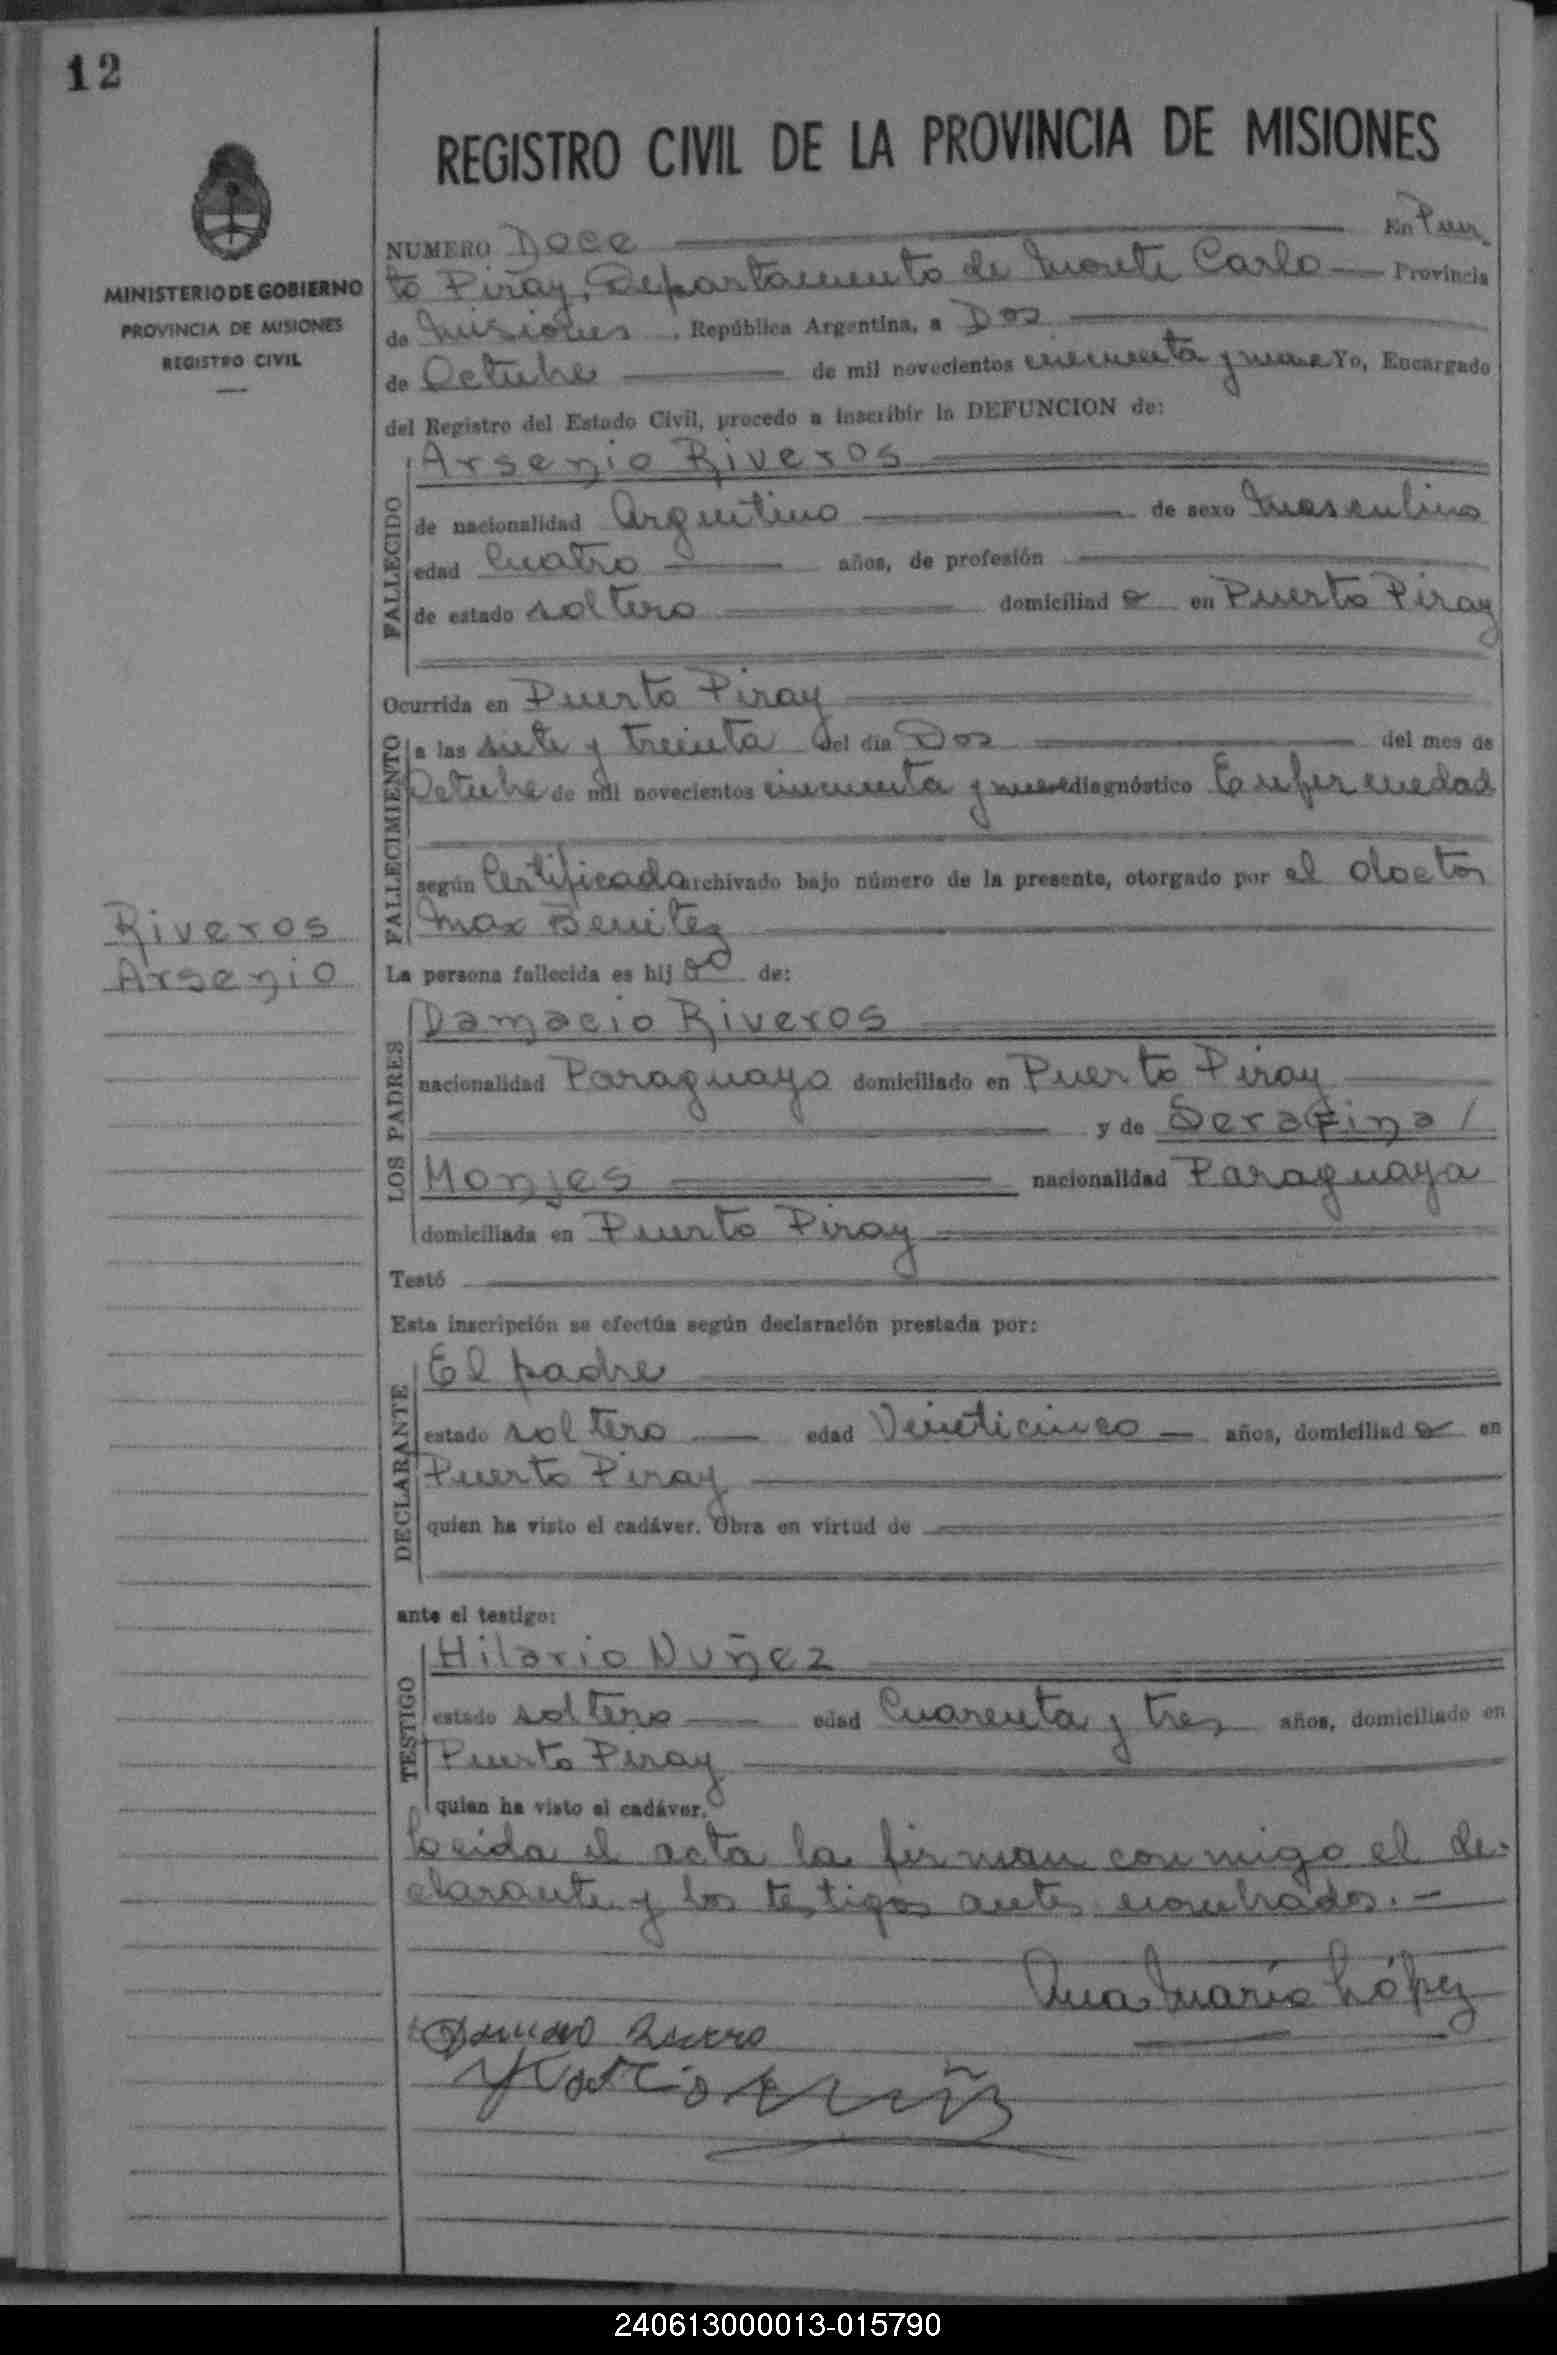 12
REGISTRO CIVIL DE LA PROVINCIA DE MISIONES
MINISTERIO DE GOBIERNO
PROVINCIA DE MISIONES
REGISTRO CIVIL
NUMERO Doce En Puer
to Piray, Departamento de Monte Carlo Provincia
de Misiones, República Argentina, a Dos
de Octubre de mil novecientos cincuenta y nueve Yo, Encargado
del Registro del Estado Civil, procedo a inscribir la DEFUNCION de:
FALLECIDO
Arsenio Riveros
de nacionalidad Argentino de sexo Masculino
edad Cuatro años, de profesión
de estado soltero domiciliad o en Puerto Piray
Ocurrida en Puerto Piray
FALLECIMIENTO
a las siete y treinta del día Dos del mes de
Octubre de mil novecientos cincuenta y nueve diagnóstico Enfermedad
según Certificado archivado bajo número de la presente, otorgado por el doctor
Max Benitez
Riveros
Arsenio
La persona fallecida es hij o de:
LOS PADRES
Damacio Riveros
nacionalidad Paraguayo domiciliado en Puerto Piray
y de Serafina /
Monjes nacionalidad Paraguaya
domiciliada en Puerto Piray
Testó
Esta inscripción se efectúa según declaración prestada por:
DECLARANTE
El padre
estado soltero edad Veinticinco años, domiciliad o en
Puerto Piray
quien ha visto el cadáver. Obra en virtud de
ante el testigo:
TESTIGO
Hilario Nuñez
estado soltero edad Cuarenta y tres años, domiciliado en
Puerto Piray
quien ha visto el cadáver.
Leida el acta la firman conmigo el de-
clarante y los testigos antes nombrados.-
Ana María López
240613000013-015790